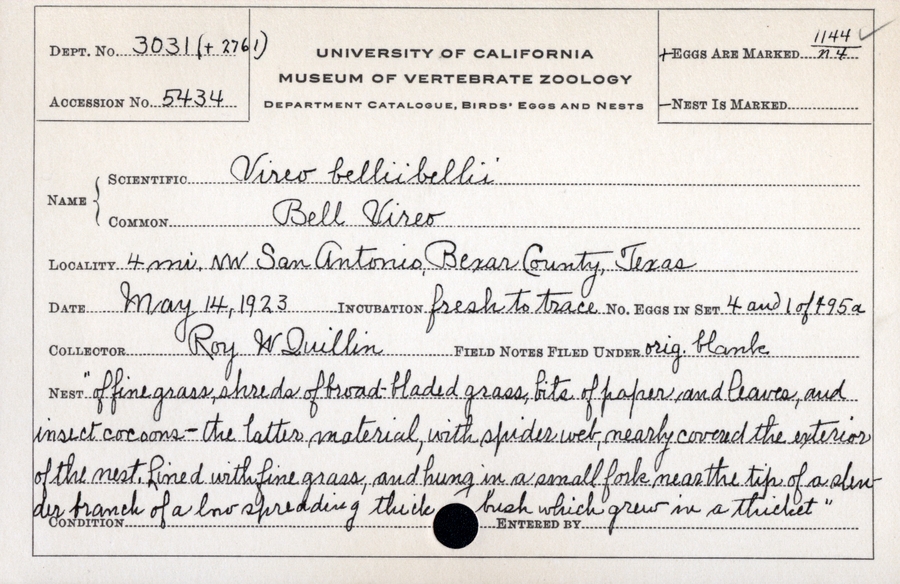 DEPT. No. 3031 (+ 2761)
ACCESSION No. 5434
UNIVERSITY OF CALIFORNIA
MUSEUM OF VERTEBRATE ZOOLOGY
DEPARTMENT CATALOGUE, BIRDS' EGGS AND NESTS
+EGGS ARE MARKED 1144/n.4 ✓
–NEST IS MARKED
NAME { SCIENTIFIC Vireo bellii bellii
COMMON Bell Vireo
LOCALITY 4 mi. NW San Antonio, Bexar County, Texas
DATE May 14, 1923 INCUBATION fresh to trace No. EGGS IN SET 4 and 1 of 495a
COLLECTOR Roy W Quillin FIELD NOTES FILED UNDER orig. blank
NEST "of fine grass, shreds of broad-bladed grass, bits of paper, and leaves, and
insect cocoons – the latter material, with spider web, nearly covered the exterior
of the nest. Lined with fine grass, and hung in a small fork near the tip of a slen-
der branch of a low spreading thick bush which grew in a thicket"
CONDITION ENTERED BY